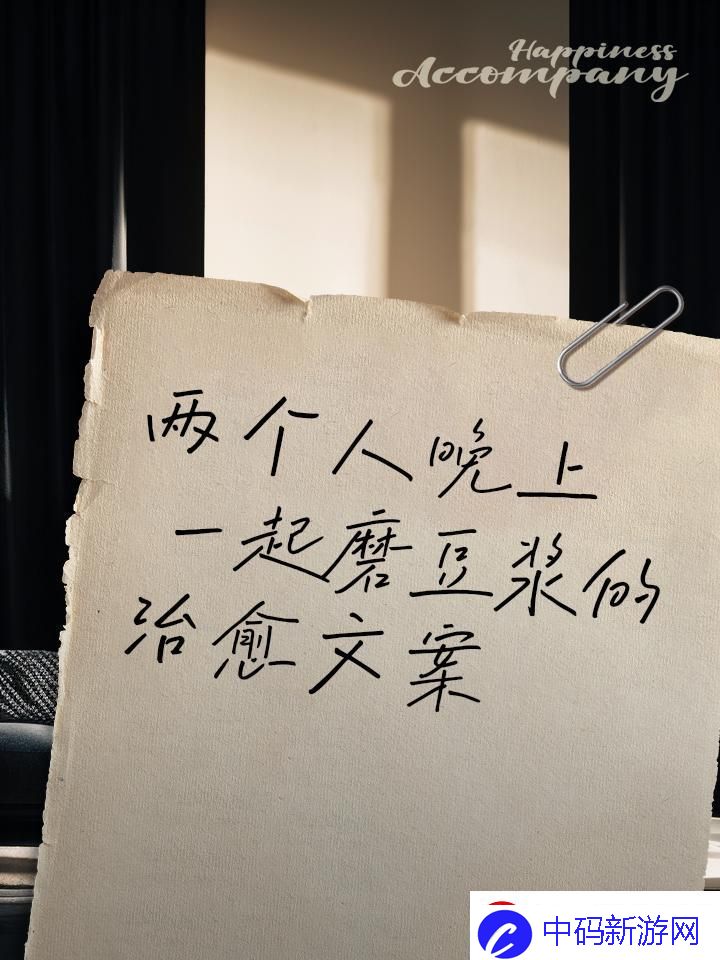 Happiness
Accompany
两个人晚上
一起磨豆浆的
治愈文案
中码新游网